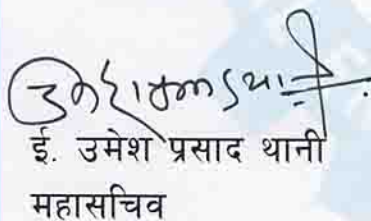 ई. उमेश प्रसाद थानी
महासचिव